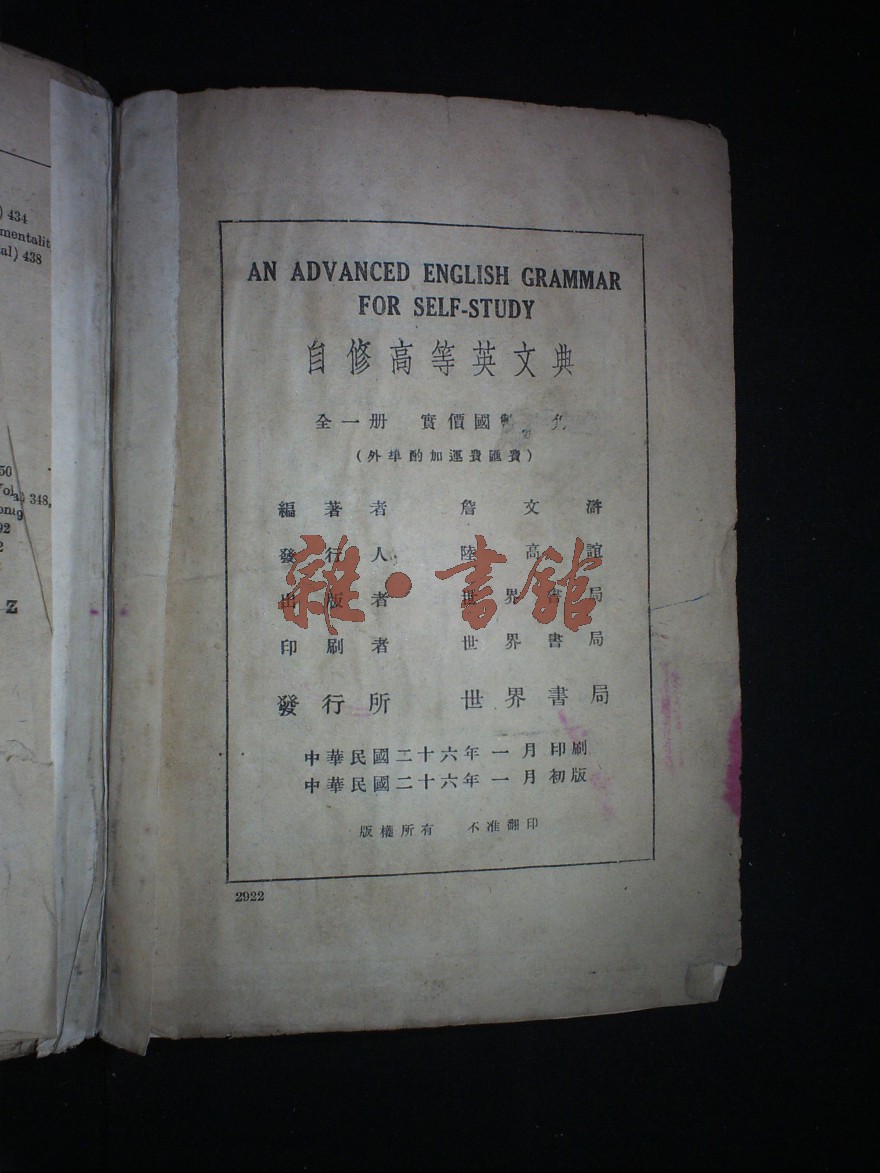 ) 434
mentalit
al) 438
50
348,
92
2
Z
AN ADVANCED ENGLISH GRAMMAR
FOR SELF-STUDY
自修高等英文典
全一册 實價國幣
(外埠酌加運費匯費)
編著者 詹文滸
發行人 陸高誼
出版者 世界書局
印刷者 世界書局
發行所 世界書局
中華民國二十六年一月印刷
中華民國二十六年一月初版
版權所有 不准翻印
2922
雜·書館